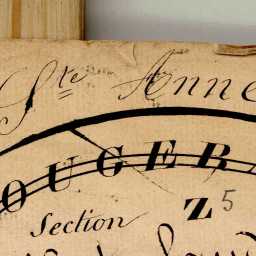 Ste Anne
OUGER
Section Z 5